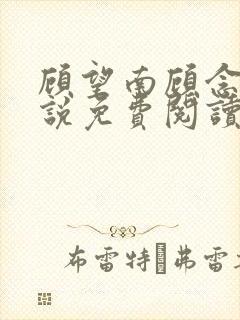 顾望南顾念
说免費閱讀
布雷特 弗雷